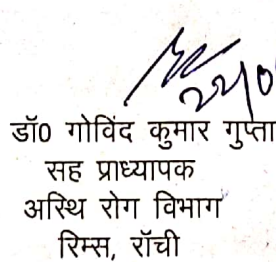 22/0
डॉ0 गोविंद कुमार गुप्ता
सह प्राध्यापक
अस्थि रोग विभाग
रिम्स, रॉची